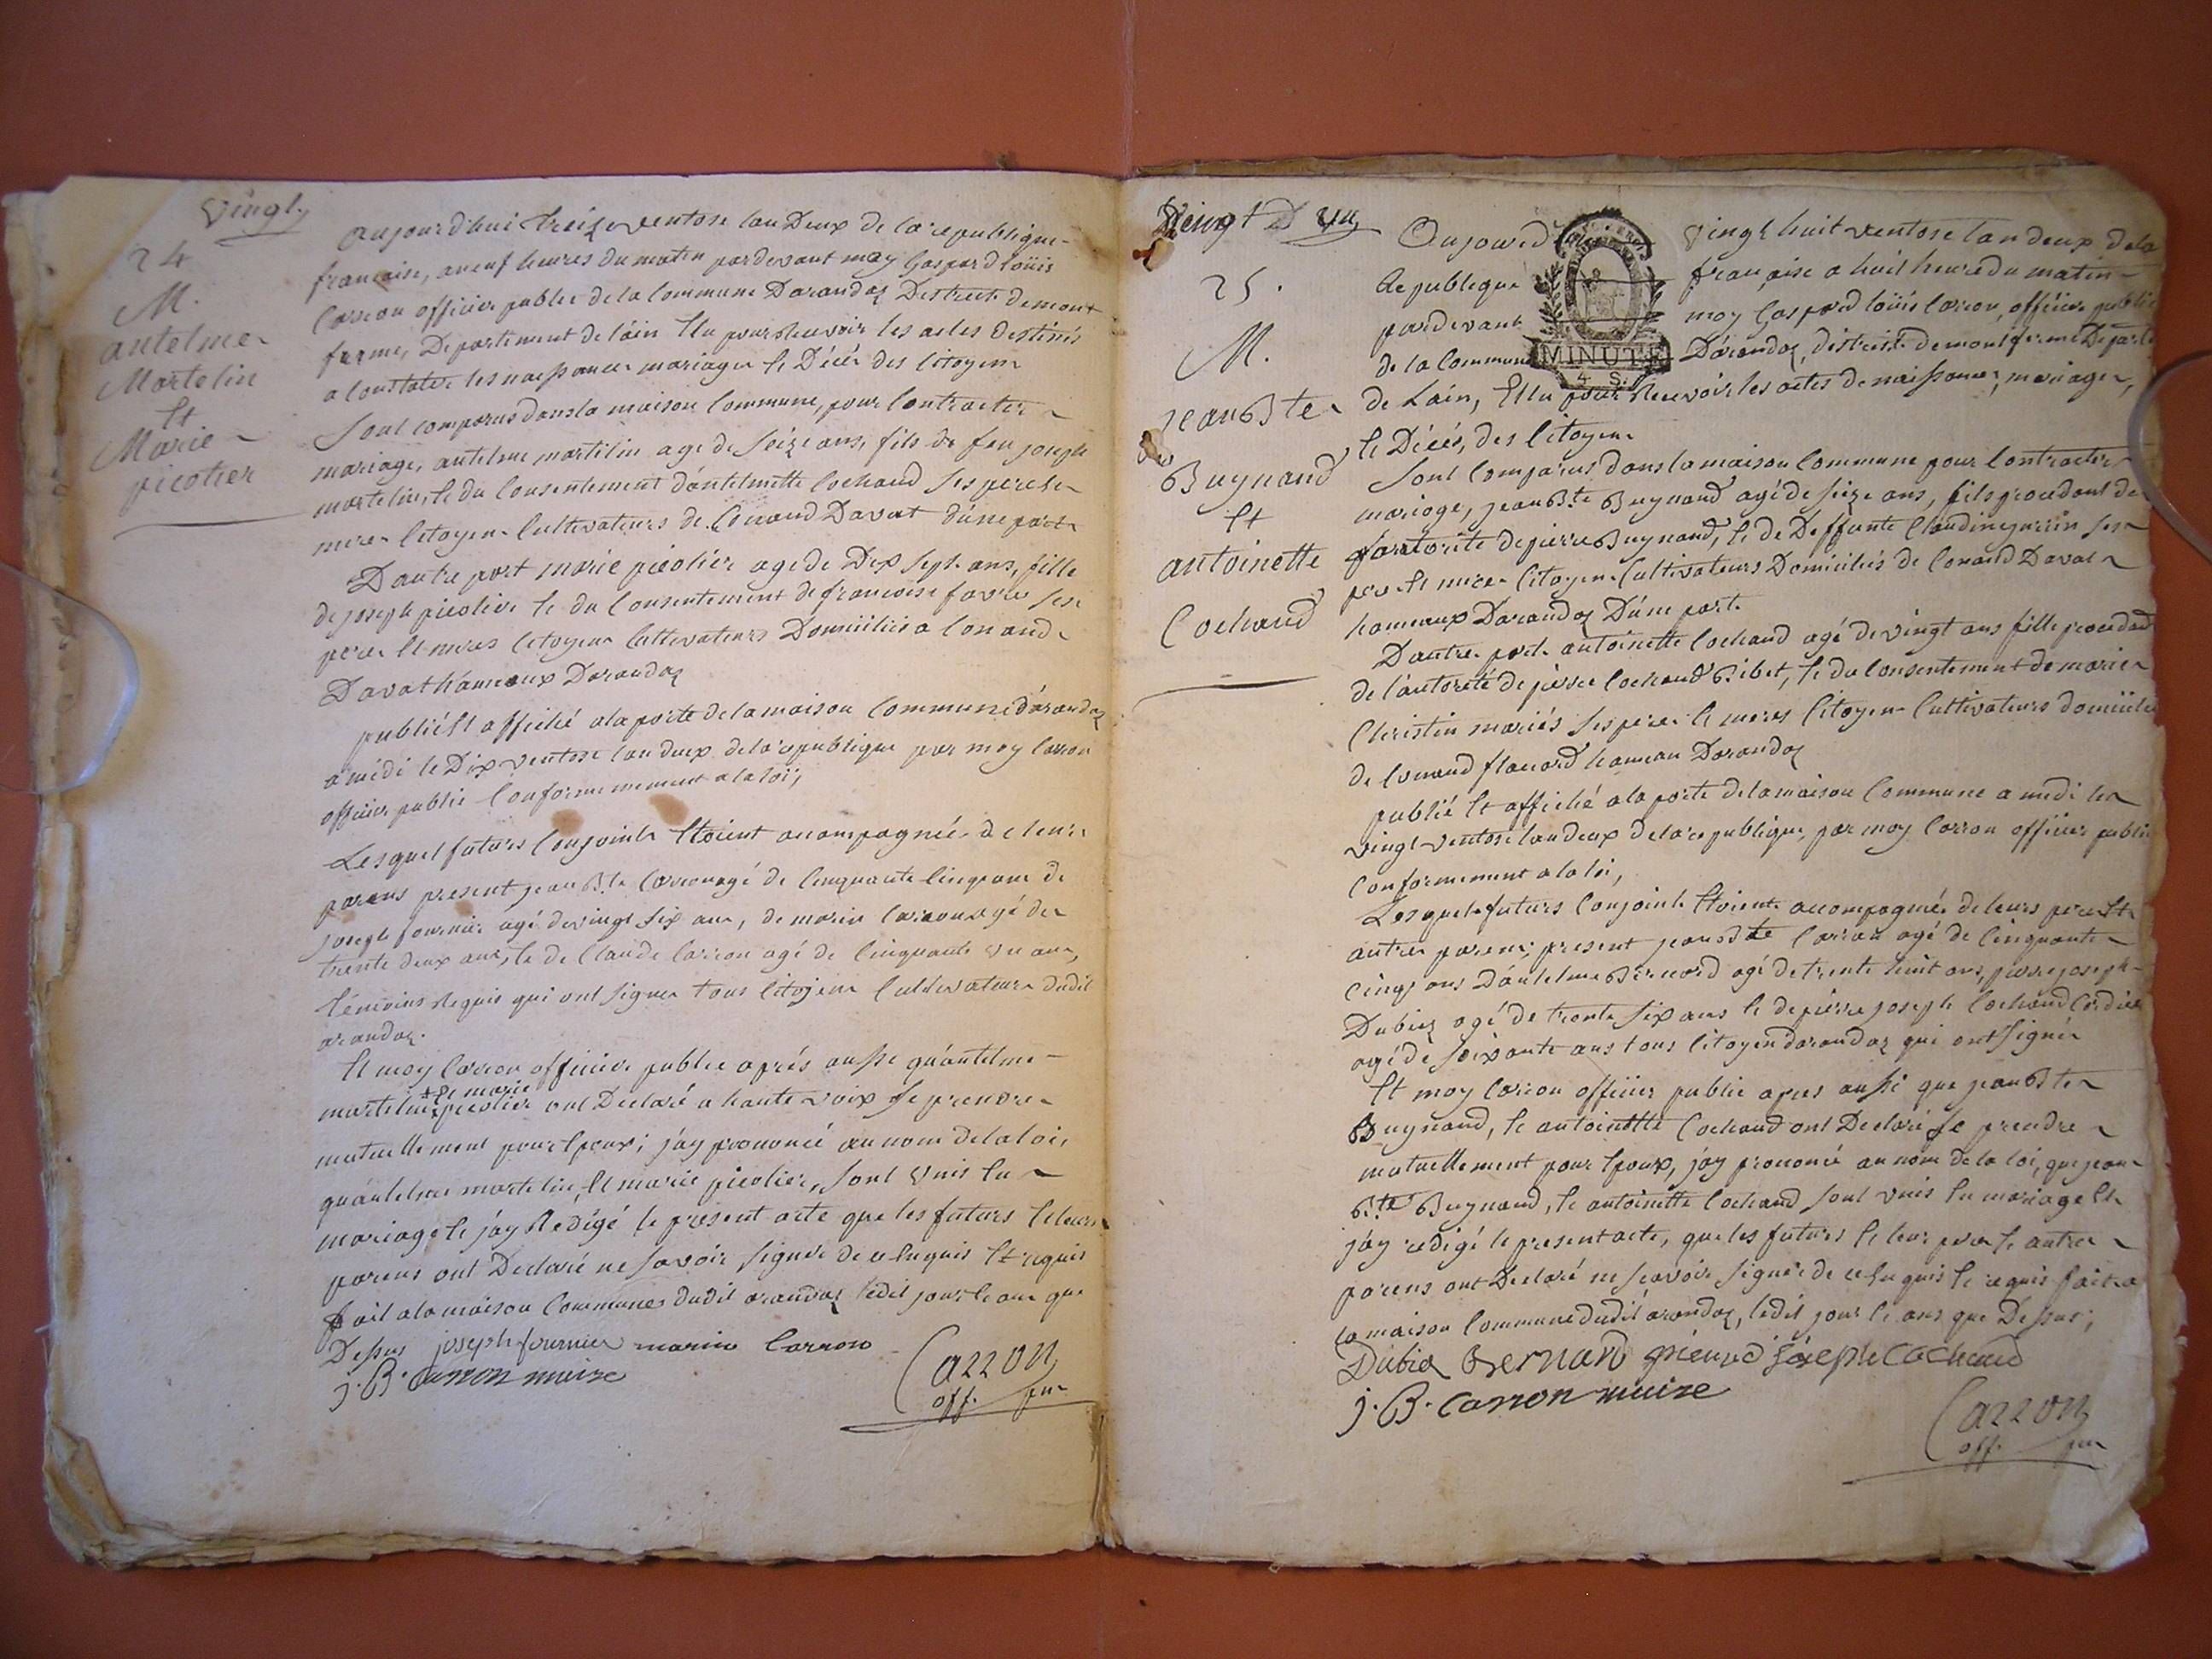 Vingt
24
M.
antelme
Martelin
Et
Marie
picolier
Aujourd'hui treize ventose lan Deux de la republique
francaise, a neuf heures du matin pardevant moy Gaspard Loüis
Carron officier public de la Commune Darandas District de mont
ferme, Departement de láin Elu pour Recevoir les actes destinés
a Constater les naissances mariages et Décés des Citoyens
Sont comparus dans la maison Commune, pour Contracter
mariage, antelme martelin age de seize ans, fils de feu joseph
martelin, et du Consentement d'antelmette Cochand ses pere et
mere Citoyens Cultivateurs de Conand Davat d'une part
Dautre part marie picolier age de Dix sept ans, fille
de joseph picolier et du Consentement de francoise favre ses
pere et meres Citoyens Cultivateurs Domiciliés a Conand
Davat hameaux Darandas
publié et affiché a la porte de la maison Commune d'arandas
a midi le Dix ventose lan deux de la republique par moy Carron
officier public Conformemement a la loi,
Lesquel futurs Conjoints Etoient acompagnés de leurs
parens present jean B.te Carron agé de Cinquante Cinq ans de
joseph fournier agé de vingt six ans, de marin Carron agé de
trente deux ans, et de Claude Carron agé de Cinquante un ans,
témoins Requis qui ont signer tous Citoyens Cultivateurs dudit
arandas.
Et moy Carron officier public aprés ausse qu'antelme
et marie
martelin picolier ont Declaré a haute voix se prendre
mutuellement pour Epoux; j'ay prononcé au nom de la loi,
qu'antelme martelin, Et marie picolier, sont unis En
mariage et j'ay Redigé le present acte que les futurs et leurs
parens ont Declaré ne savoir signer de ce Enquis Et requis
fait a la maison Commune dudit arandas ledit jour et an que
Dessus joseph fournier marin Carron
j. B. Carron maire
Carron
off. pu
Vingt D un
25.
M.
jean Bte
Buynand
Et
antoinette
Cochand
Aujourd'hui vingt huit ventose lan deux de la
Republique française a huit heure du matin
pardevant moy Gaspard Loüis Carron, officier public
de la Commune D'arandas, district de montferme Departe
MINUTE
4 S.
de Lain, Elu pour Recevoir les actes de naissances, mariages,
et Décés, des Citoyens
Sont Comparus dans la maison Commune pour Contracter
mariage, jean B.te Buynand agé de seize ans, fils procedant de
l'autorité de pierre Buynand, et de Deffunte Claudine guerin ses
pere et mere Citoyens Cultivateurs Domiciliés de Conand Davat
hameaux Darandas D'une part
D'autre part antoinette Cochand agé de vingt ans fille procedant
de l'autorité de pierre Cochand Bibet, et du Consentement de marie
Christin mariés ses pere et meres Citoyens Cultivateurs domicilie
de Conand flacard hameau Darandas
publié Et affiché a la porte de la maison Commune a midi le
vingt ventose lan deux de la republique, par moy Carron officier public
Conformement a la loi,
Lesquels futurs Conjoints Etoient acompagnés de leurs pere et
autres parens; present jean Bte Carron agé de Cinquante
cinq ans D'antelme Bernard agé de trente huit ans, pierre joseph
Dubiez agé de trente six ans et de pierre joseph Cochand Cordier
agé de soixante ans tous Citoyen darandas qui ont signér
Et moy Carron officier public apres aussi que jean Bte
Buynand, et antoinette Cochand ont Declaré se prendre
mutuellement pour Epoux, j'ay prononcé au nom de la loi, que jean
B.te Buynand, et antoinette Cochand sont unis En mariage Et
j'ay redigé le present acte, que les futurs et leur pere et autre
parens ont Declaré ne sçavoir signer de ce Enquis et requis fait a
la maison Commune dudit arandas, ledit jour et ans que Dessus;
Dubiez Bernard pierre joseph Cochand
j. B. Carron maire
Carron
off. pu